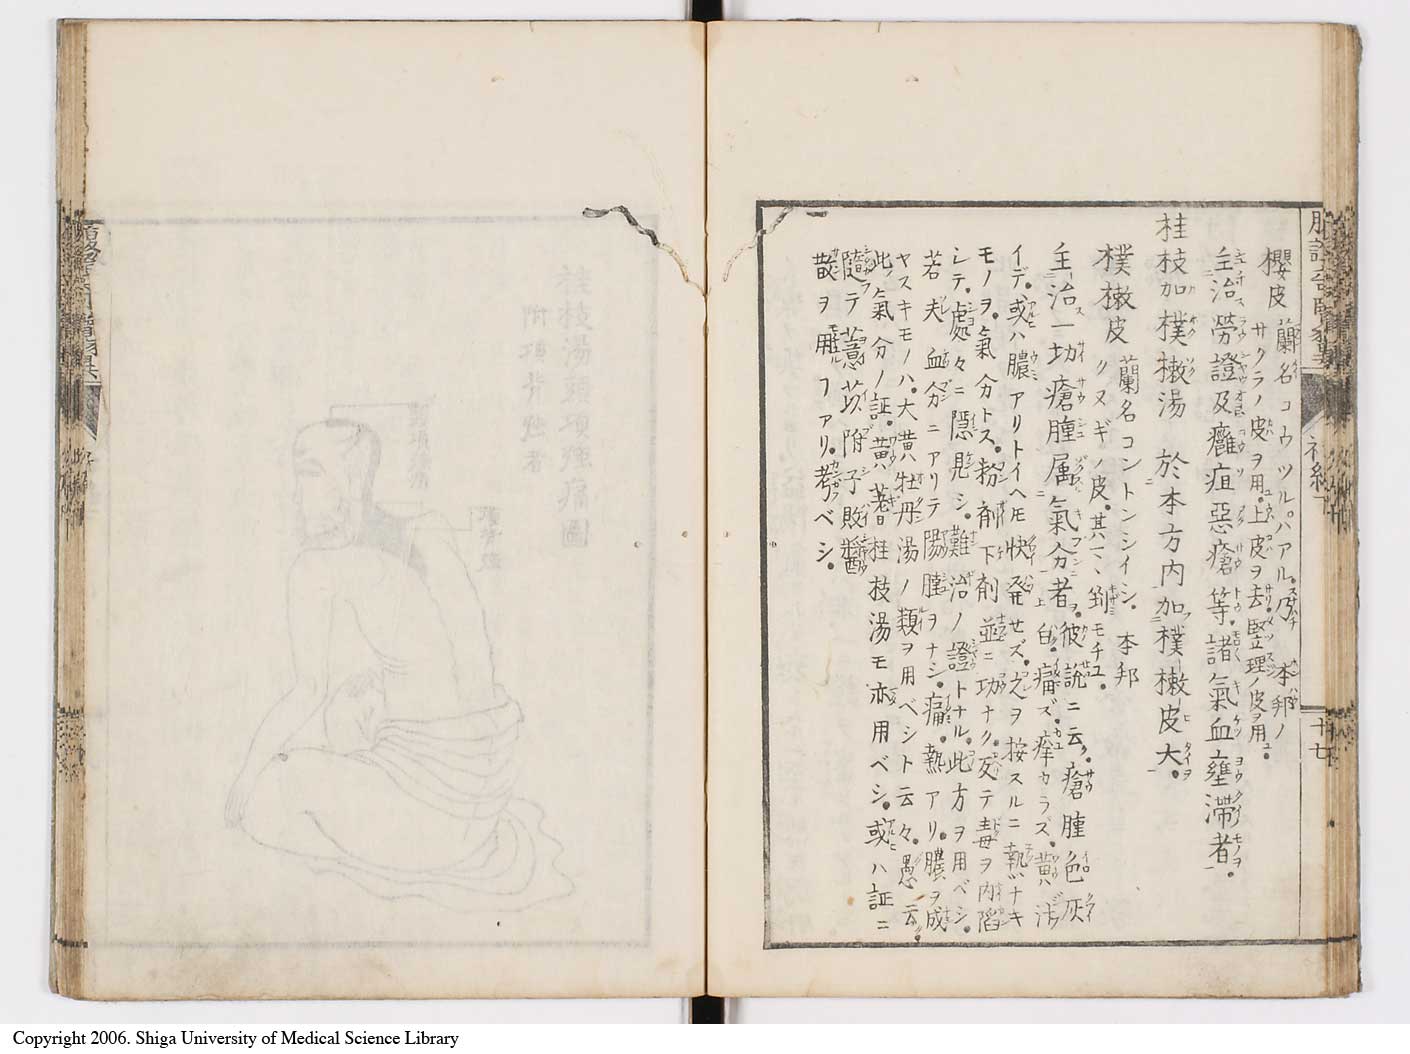 櫻皮 蘭名コウツル。ハアル。乃 本邦ノ
サクラノ皮ヲ用。上皮ヲ去竪理ノ皮ヲ用。
主治勞證及癰疽惡瘡等。諸氣血壅滯者。
桂枝加樸樕湯 於本方内加樸樕皮大。
樸樕皮 蘭名コントンシイシ。本邦
クヌギノ皮。其一、剉モチユ。
主治一切瘡腫属氣分者。彼説ニ云。瘡腫色灰
白。痛ズ。痒カラズ。黄汁
イデ。或ハ膿アリトイヘ𪜈快発セズ。之ヲ按スルニ熱ナキ
モノヲ。氣分トス。粉剤下剤並ニ功ナク。反テ毒ヲ内陷
シテ。處々ニ隠見シ。難治ノ證トナル。此方ヲ用ベシ。
若夫血分ニアリテ陽腫ヲナシ。痛熱アリ。膿ヲ成
ヤスキモノハ。大黄牡丹湯ノ類ヲ用ベシト云々。愚云。
此ノ氣分ノ証。黄耆桂枝湯モ亦用ベシ。或ハ証ニ
隨テ薏苡附子敗醬
散ヲ用フアリ。考ベシ。
十七
桂枝湯頭項强痛圖
附項背𠘧𠘧者
Copyright 2006. Shiga University of Medical Science Library